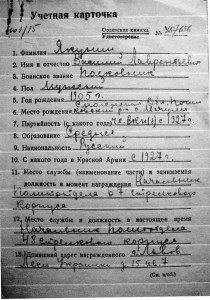 Учетная карточка
Орденская книжка
Удостоверение
1. Фамилия Якунин
2. Имя и отчество Василий Лаврентьевич
3. Воинское звание Полковник
4. Пол Мужской
5. Год рождения 1905 г.
6. Место рождения
7. Партийность (с какого года) чл. ВКП(б) с 1927 г.
8. Образование Среднее
9. Национальность Русский
10. С какого года в Красной Армии с 1927 г.
11. Место службы (наименование части) и занимаемая
должность в момент награждения Начальник
политотдела 67 стрелкового
корпуса
12. Место службы и должность в настоящее время
Начальник политотдела
48 стрелкового корпуса
13. Домашний адрес награжденного г. Львов
Леси Украинки д. 15 кв. 7
(См. н/об.)